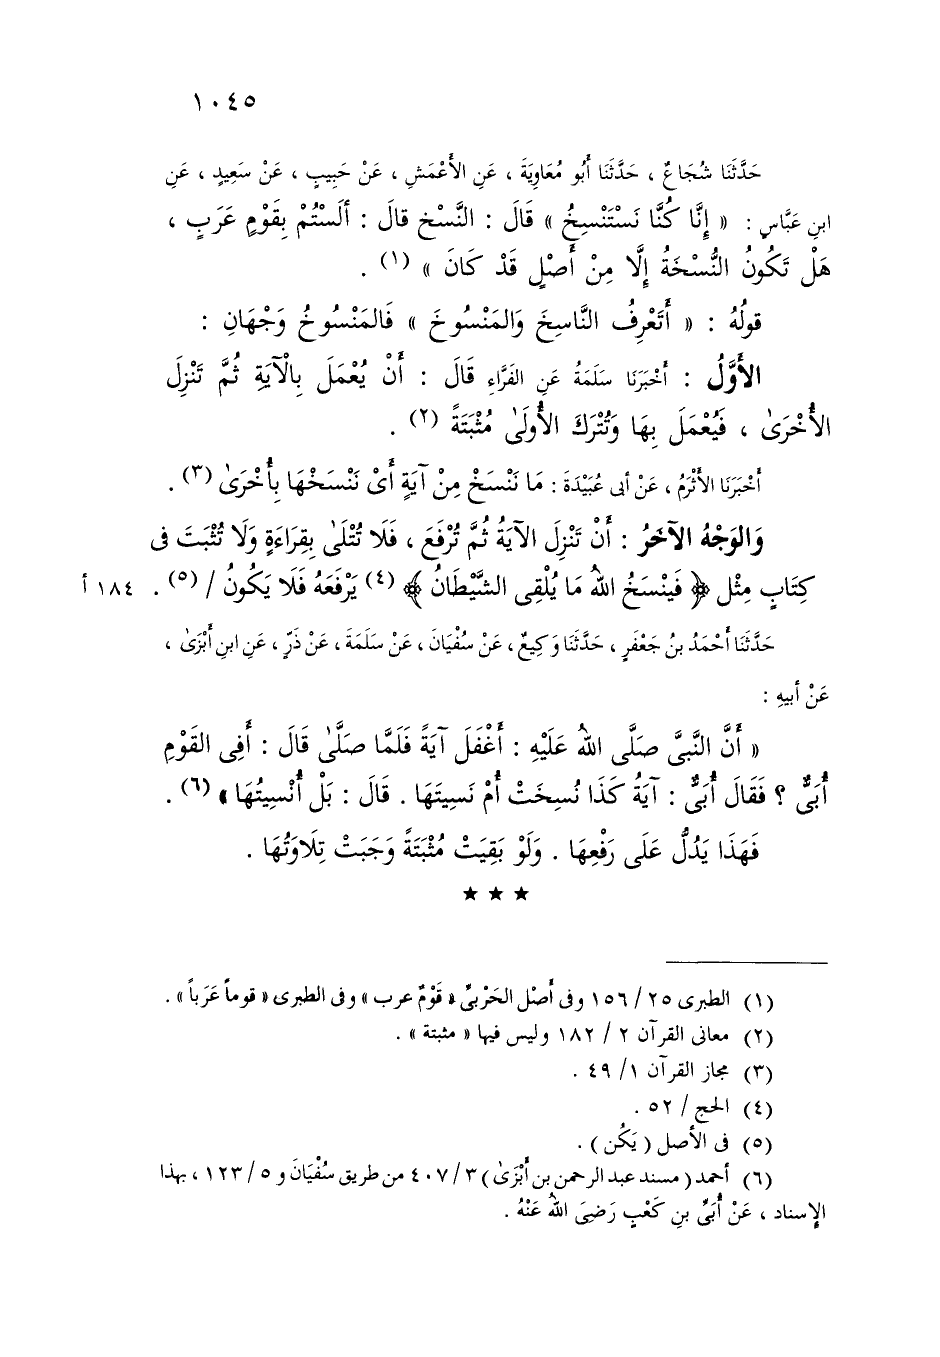 ١٠٤٥
حَدَّثَنَا شُجَاعٌ ، حَدَّثَنَا أَبُو مُعَاوِيَةَ ، عَنِ الأَعْمَشِ ، عَنْ حَبِيبٍ ، عَنْ سَعِيدٍ ، عَنِ
ابنِ عَبَّاسٍ : « إِنَّا كُنَّا نَسْتَنْسِخُ » قَالَ : النَّسْخ قالَ : أَلَسْتُمْ بِقَوْمٍ عَرَبٍ ،
هَلْ تَكُونُ النُّسْخَةُ إِلَّا مِنْ أَصْلٍ قَدْ كَانَ » (١) .
قولُهُ : « أَتَعْرِفُ النَّاسِخَ وَالمَنْسُوخَ » فَالمَنْسُوخُ وَجْهَانِ :
الأَوَّلُ : أَخْبَرَنَا سَلَمَةُ عَنِ الفَرَّاءِ قَالَ : أَنْ يُعْمَلَ بِالْآيَةِ ثُمَّ تَنْزِلَ
الأُخْرَىٰ ، فَيُعْمَلَ بِهَا وَتُتْرَكَ الأُولَىٰ مُثْبَتَةً (٢) .
أَخْبَرَنَا الأَثْرَمُ ، عَنْ أبى عُبَيْدَةَ : مَا نَنْسَخْ مِنْ آيَةٍ أَىْ نَنْسَخْهَا بِأُخْرَىٰ (٣) .
وَالوَجْهُ الآخَرُ : أَنْ تَنْزِلَ الآيَةُ ثُمَّ تُرْفَعَ ، فَلَا تُتْلَىٰ بِقِرَاءَةٍ وَلَا تُثْبَتَ فى
كِتَابٍ مِثْل ﴿ فَيَنْسَخُ اللهُ مَا يُلْقِى الشَّيْطَانُ ﴾ (٤) يَرْفَعَهُ فَلَا يَكُونُ / (٥) . ١٨٤ أ
حَدَّثَنَا أَحْمَدُ بنُ جَعْفَرٍ ، حَدَّثَنَا وَكِيعٌ ، عَنْ سُفْيَانَ ، عَنْ سَلَمَةَ ، عَنْ ذَرٍّ ، عَنِ ابنِ أَبْزَىٰ ،
عَنْ أبيهِ :
« أَنَّ النَّبِىَّ صَلَّى اللهُ عَلَيْهِ : أَغْفَلَ آيَةً فَلَمَّا صَلَّىٰ قَالَ : أَفِى القَوْمِ
أُبَىٌّ ؟ فَقَالَ أُبَىٌّ : آيَةُ كَذَا نُسِخَتْ أَمْ نَسِيتَهَا . قَالَ : بَلْ أُنْسِيتُهَا » (٦) .
فَهَذَا يَدُلُّ عَلَى رَفْعِهَا . وَلَوْ بَقِيَتْ مُثْبَتَةً وَجَبَتْ تِلَاوَتُهَا .
★ ★ ★
(١) الطبرى ٢٥ / ١٥٦ وفى أَصْل الحَرْبىِّ « قَوْمٌ عرب » وفى الطبرى « قوماً عَرَباً » .
(٢) معانى القرآن ٢ / ١٨٢ وليس فيها « مثبتة » .
(٣) مجاز القرآن ١ / ٤٩ .
(٤) الحج / ٥٢ .
(٥) فى الأصل ( يَكُن ) .
(٦) أحمد ( مسند عبد الرحمن بن أَبْزَىٰ ) ٣ / ٤٠٧ من طريق سُفْيَانَ و ٥ / ١٢٣ ، بهذا
الإسناد ، عَنْ أُبَىِّ بنِ كَعْبٍ رَضِىَ اللهُ عَنْهُ .